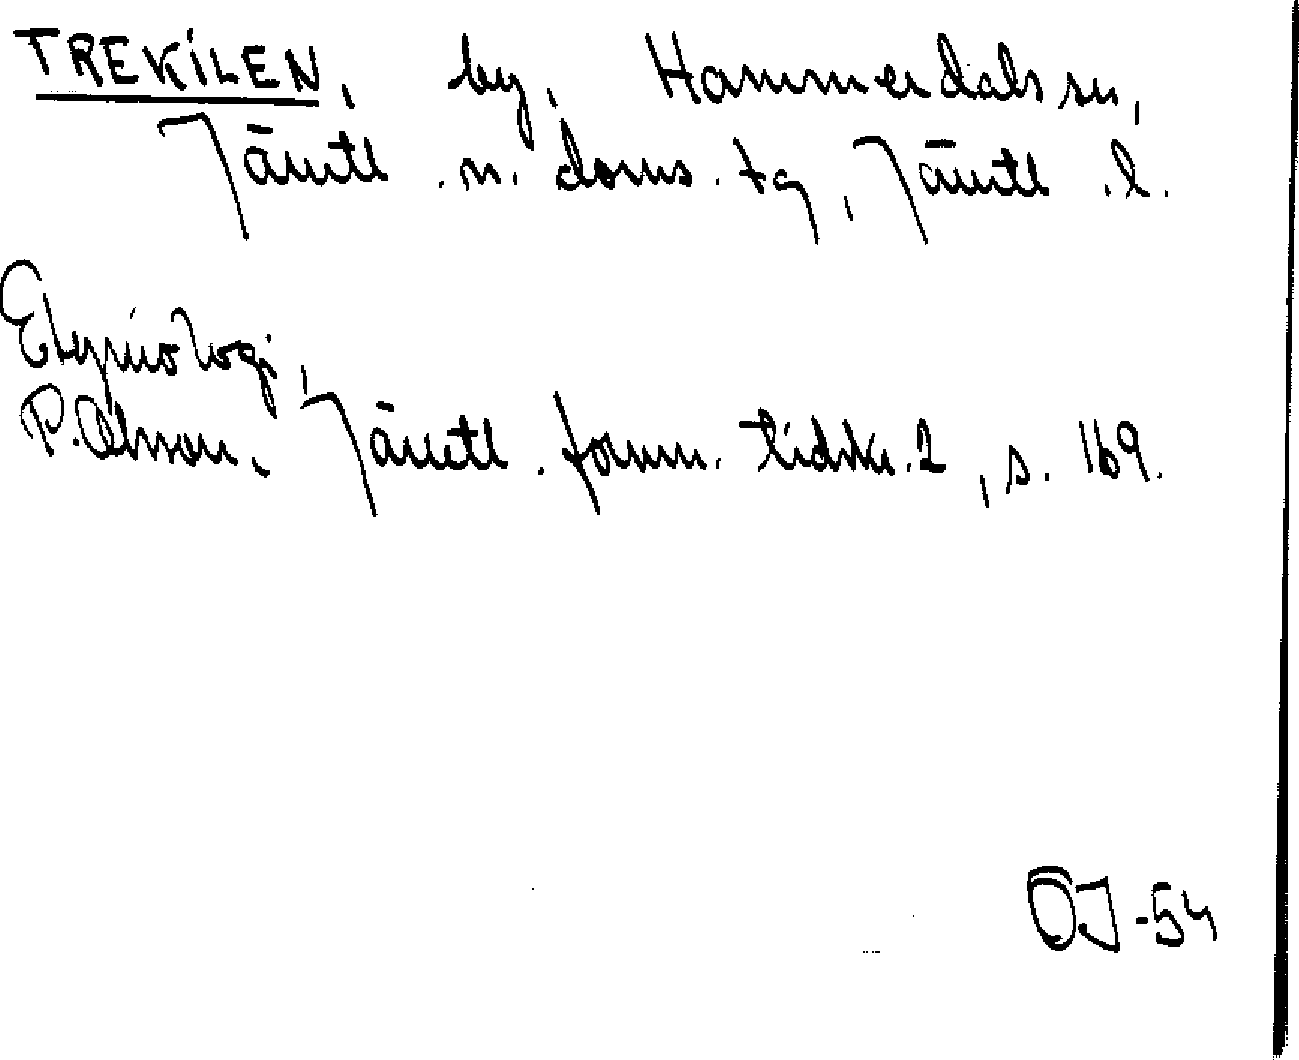 TREKILEN, by, Hammerdals sn,
Jämtl. n. doms. tg, Jämtl. l.
Etymologi,
P. Olsson, Jämtl. fornm. tidskr. 2, s. 169.
ÖJ-54